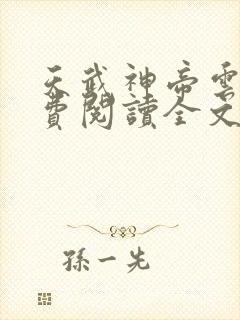 天武神帝雲
費閱讀全文
孫一先